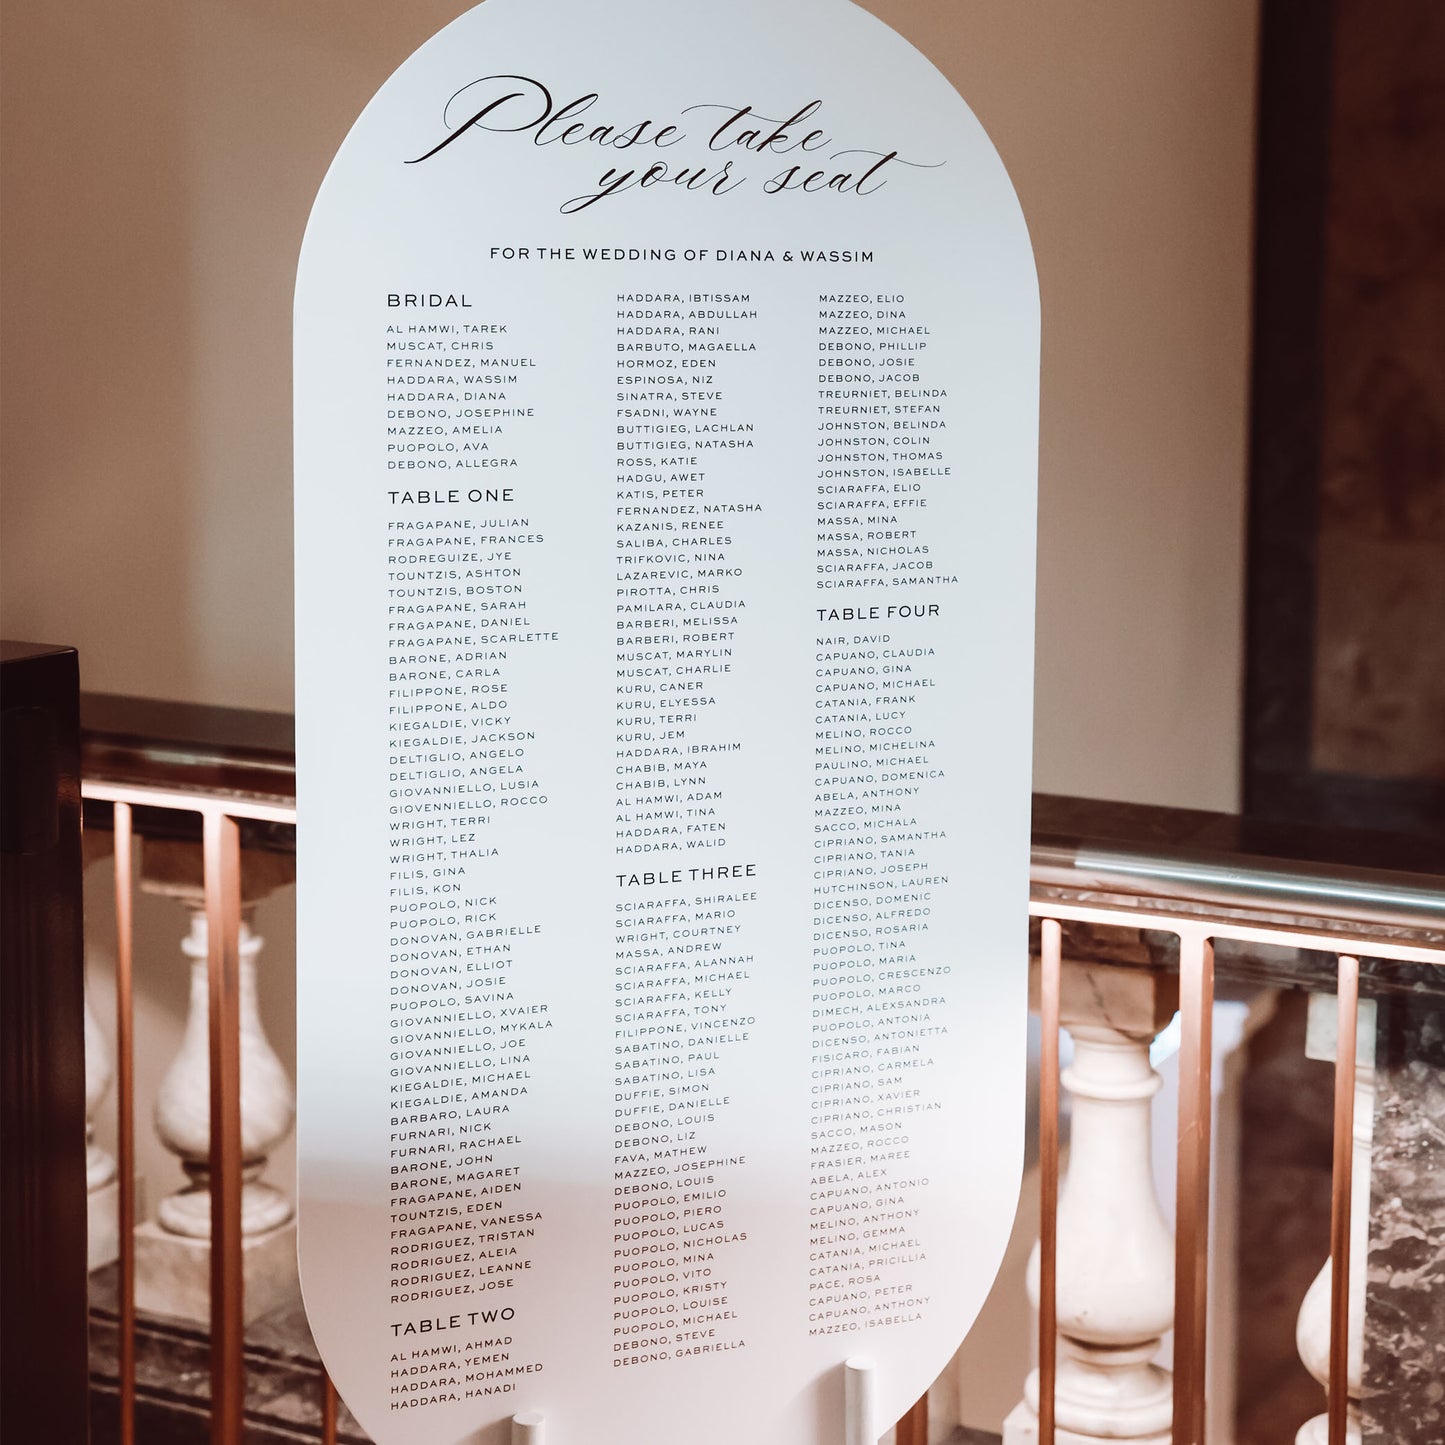 Please take
your seat
FOR THE WEDDING OF DIANA & WASSIM
BRIDAL
AL HAMWI, TAREK
MUSCAT, CHRIS
FERNANDEZ, MANUEL
HADDARA, WASSIM
HADDARA, DIANA
DEBONO, JOSEPHINE
MAZZEO, AMELIA
PUOPOLO, AVA
DEBONO, ALLEGRA
TABLE ONE
FRAGAPANE, JULIAN
FRAGAPANE, FRANCES
RODREGUIZE, JYE
TOUNTZIS, ASHTON
TOUNTZIS, BOSTON
FRAGAPANE, SARAH
FRAGAPANE, DANIEL
FRAGAPANE, SCARLETTE
BARONE, ADRIAN
BARONE, CARLA
FILIPPONE, ROSE
FILIPPONE, ALDO
KIEGALDIE, VICKY
KIEGALDIE, JACKSON
DELTIGLIO, ANGELO
DELTIGLIO, ANGELA
GIOVENNIELLO, LUSIA
GIOVENNIELLO, ROCCO
WRIGHT, TERRI
WRIGHT, LEZ
WRIGHT, THALIA
FILIS, GINA
FILIS, KON
PUOPOLO, NICK
PUOPOLO, RICK
DONOVAN, GABRIELLE
DONOVAN, ETHAN
DONOVAN, ELLIOT
DONOVAN, JOSIE
PUOPOLO, SAVINA
GIOVANNIELLO, XVAIER
GIOVANNIELLO, MYKALA
GIOVANNIELLO, JOE
GIOVANNIELLO, LINA
KIEGALDIE, MICHAEL
KIEGALDIE, AMANDA
BARBARO, LAURA
FURNARI, NICK
FURNARI, RACHAEL
BARONE, JOHN
BARONE, MAGARET
FRAGAPANE, AIDEN
TOUNTZIS, EDEN
FRAGAPANE, VANESSA
RODRIGUEZ, TRISTAN
RODRIGUEZ, ALEIA
RODRIGUEZ, LEANNE
RODRIGUEZ, JOSE
TABLE TWO
AL HAMWI, AHMAD
HADDARA, YEMEN
HADDARA, MOHAMMED
HADDARA, HANADI
HADDARA, IBTISSAM
HADDARA, ABDULLAH
HADDARA, RANI
BARBUTO, MAGAELLA
HORMOZ, EDEN
ESPINOSA, NIZ
SINATRA, STEVE
FSADNI, WAYNE
BUTTIGIEG, LACHLAN
BUTTIGIEG, NATASHA
ROSS, KATIE
HADGU, AWET
KATIS, PETER
FERNANDEZ, NATASHA
KAZANIS, RENEE
SALIBA, CHARLES
TRIFKOVIC, NINA
LAZAREVIC, MARKO
PIROTTA, CHRIS
PAMILARA, CLAUDIA
BARBERI, MELISSA
BARBERI, ROBERT
MUSCAT, MARYLIN
MUSCAT, CHARLIE
KURU, CANER
KURU, ELYESSA
KURU, TERRI
KURU, JEM
HADDARA, IBRAHIM
CHABIB, MAYA
CHABIB, LYNN
AL HAMWI, ADAM
AL HAMWI, TINA
HADDARA, FATEN
HADDARA, WALID
TABLE THREE
SCIARAFFA, SHIRALEE
SCIARAFFA, MARIO
WRIGHT, COURTNEY
MASSA, ANDREW
SCIARAFFA, ALANNAH
SCIARAFFA, MICHAEL
SCIARAFFA, KELLY
SCIARAFFA, TONY
FILIPPONE, VINCENZO
SABATINO, DANIELLE
SABATINO, PAUL
SABATINO, LISA
DUFFIE, SIMON
DUFFIE, DANIELLE
DEBONO, LOUIS
DEBONO, LIZ
FAVA, MATHEW
MAZZEO, JOSEPHINE
DEBONO, LOUIS
PUOPOLO, EMILIO
PUOPOLO, PIERO
PUOPOLO, LUCAS
PUOPOLO, NICHOLAS
PUOPOLO, MINA
PUOPOLO, VITO
PUOPOLO, KRISTY
PUOPOLO, LOUISE
PUOPOLO, MICHAEL
DEBONO, STEVE
DEBONO, GABRIELLA
MAZZEO, ELIO
MAZZEO, DINA
MAZZEO, MICHAEL
DEBONO, PHILLIP
DEBONO, JOSIE
DEBONO, JACOB
TREURNIET, BELINDA
TREURNIET, STEFAN
JOHNSTON, BELINDA
JOHNSTON, COLIN
JOHNSTON, THOMAS
JOHNSTON, ISABELLE
SCIARAFFA, ELIO
SCIARAFFA, EFFIE
MASSA, MINA
MASSA, ROBERT
MASSA, NICHOLAS
SCIARAFFA, JACOB
SCIARAFFA, SAMANTHA
TABLE FOUR
NAIR, DAVID
CAPUANO, CLAUDIA
CAPUANO, GINA
CAPUANO, MICHAEL
CATANIA, FRANK
CATANIA, LUCY
MELINO, ROCCO
MELINO, MICHELINA
PAULINO, MICHAEL
CAPUANO, DOMENICA
ABELA, ANTHONY
MAZZEO, MINA
SACCO, MICHALA
CIPRIANO, SAMANTHA
CIPRIANO, TANIA
CIPRIANO, JOSEPH
HUTCHINSON, LAUREN
DICENSO, DOMENIC
DICENSO, ALFREDO
DICENSO, ROSARIA
PUOPOLO, TINA
PUOPOLO, MARIA
PUOPOLO, CRESCENZO
PUOPOLO, MARCO
DIMECH, ALEXSANDRA
PUOPOLO, ANTONIA
DICENSO, ANTONIETTA
FISICARO, FABIAN
CIPRIANO, CARMELA
CIPRIANO, SAM
CIPRIANO, XAVIER
CIPRIANO, CHRISTIAN
SACCO, MASON
MAZZEO, ROCCO
FRASIER, MAREE
ABELA, ALEX
CAPUANO, ANTONIO
CAPUANO, GINA
MELINO, ANTHONY
MELINO, GEMMA
CATANIA, MICHAEL
CATANIA, PRICILLIA
PACE, ROSA
CAPUANO, PETER
CAPUANO, ANTHONY
MAZZEO, ISABELLA